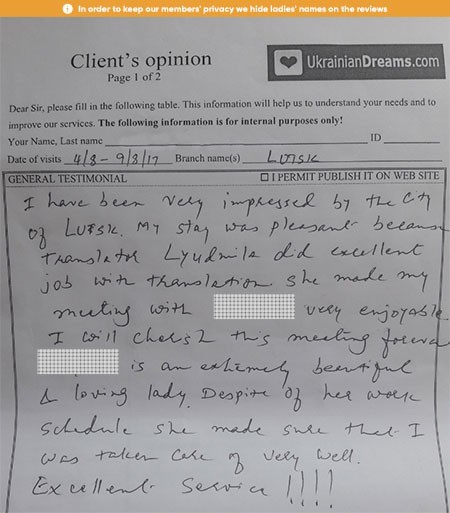 In order to keep our members' privacy we hide ladies' names on the reviews
Client's opinion
Page 1 of 2
UkrainianDreams.com
Dear Sir, please fill in the following table. This information will help us to understand your needs and to
improve our services. The following information is for internal purposes only!
Your Name, Last name ID
Date of visits 4/8 - 9/8/17 Branch name(s) LUTSK
GENERAL TESTIMONIAL ☐ I PERMIT PUBLISH IT ON WEB SITE
I have been very impressed by the city
of LUTSK. My stay was pleasant because
translator Lyudmila did excellent
job with translation. She made my
meeting with very enjoyable
I will cherish this meeting forever
is an extremely beautiful
& loving lady. Despite of her work
schedule she made sure that I
was taken care of very well.
Excellent Service !!!!